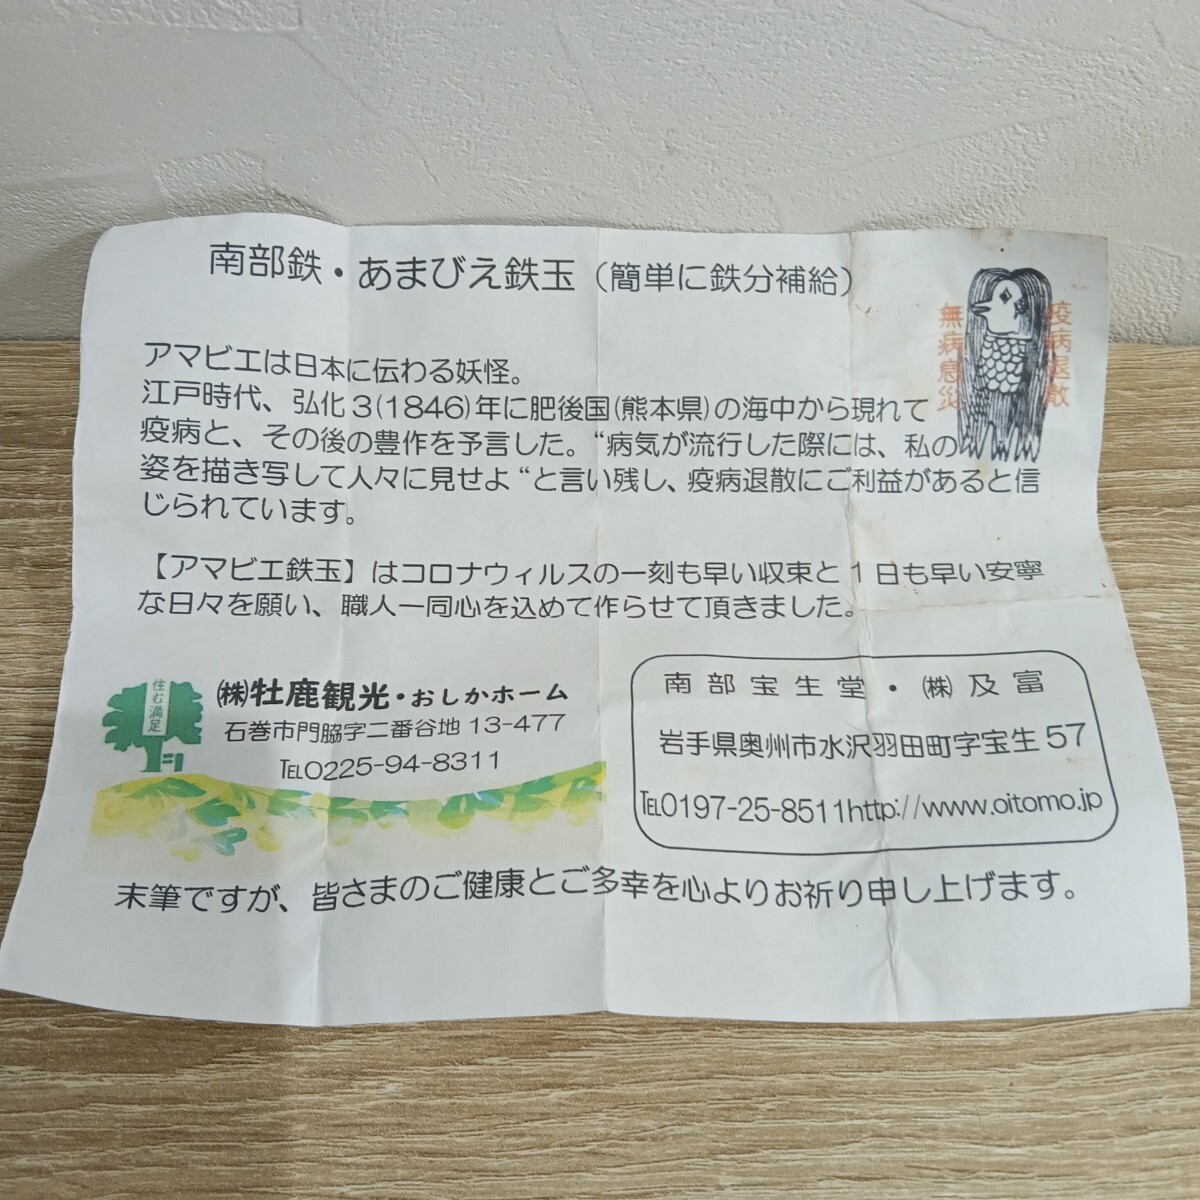 南部鉄・あまびえ鉄玉（簡単に鉄分補給）
疫病退散
無病息災
アマビエは日本に伝わる妖怪。
江戸時代、弘化３(1846)年に肥後国(熊本県)の海中から現れて
疫病と、その後の豊作を予言した。“病気が流行した際には、私の
姿を描き写して人々に見せよ“と言い残し、疫病退散にご利益があると信
じられています。
【アマビエ鉄玉】はコロナウィルスの一刻も早い収束と１日も早い安寧
な日々を願い、職人一同心を込めて作らせて頂きました。
住む満足
㈱牡鹿観光・おしかホーム
石巻市門脇字二番谷地 13-477
℡0225-94-8311
南部宝生堂・㈱及富
岩手県奥州市水沢羽田町字宝生57
℡0197-25-8511http://www.oitomo.jp
末筆ですが、皆さまのご健康とご多幸を心よりお祈り申し上げます。